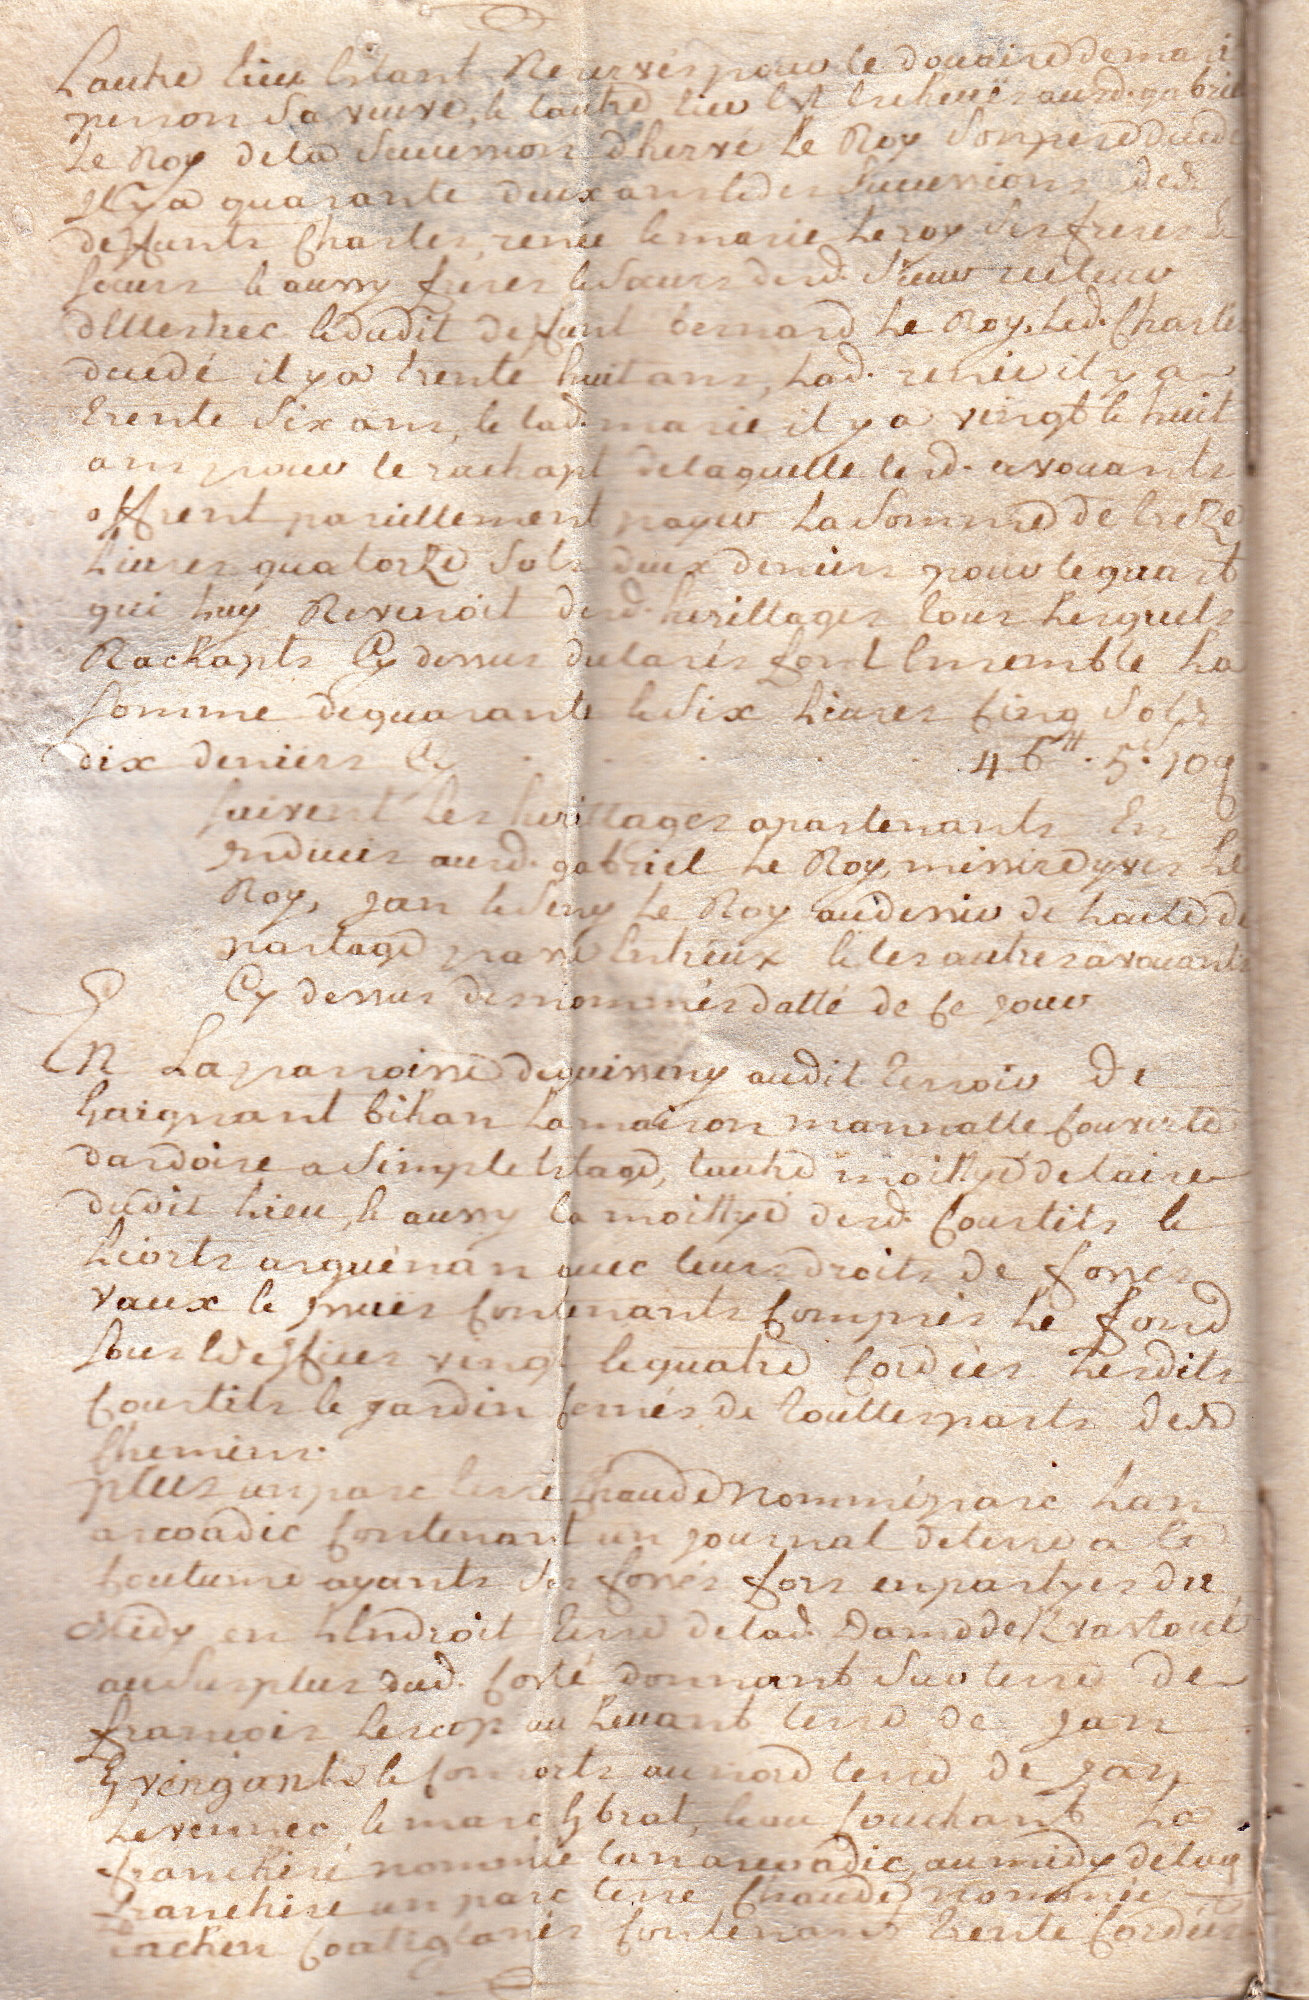 Lautre tiers Estant Reservés pour le douaire de marie
person Sa veuve, le lautre tiers Est Eschenë ausd. gabriel
Le Roy de la Succession d'hervé Le Roy Son pere decedé
Il y a quarante deux ans le des Successions desd.
deffunts Charles, renée le marie Le roy Ses freres Et
soeurs le aussy freres le Soeurs dud. Sieur recteur
le dudit deffunt bernard Le Roy, Led. Charles
decedé il y a trente huit ans, Lad. renée il y a
trente Six ans, le lad. marie il y a vingt le huit
ans pour le rachapt de laquelle lesd. avouants
offrent pareillement payer La Somme de treze
Livres quatorze Sols deux deniers pour le quart
qui luy Revenoit desd. herittages tous Lesquels
Rachapts Cy dessus declarés font Ensemble La
somme de quarante le Six Livres Cinq Sols
dix deniers Cy . . . . . . 46# . 5s. 10d
Suivent Les herittages apartenants En
Indivis ausd. gabriel Le Roy, missire yves Le
Roy, Jan le Le Roy au desir de Lacte de
partage passé Entreux le les autres avouants
Cy dessus desnommés datté de Ce Jour
En La parroisse de guisseny audit terroir de
bihan La maison mannalle Couverte
dardoise a Simple Estage, lautre moittyé de laire
dudit Lieu, le aussy la moittyé desd. Courtils le
Liorts arguénan avec leurs droits de fossés
vaux le yssues Contenants Compris Le fond
Sous Edeffices vingt le quatre Cordées Lesdits
Courtils le Jardin Cernés de touttes parts desd.
Chemins.
plus un parc terre Chaude Nommé parc Lan
arcoadic Contenant un Journal de terre a la
Coutume ayants Ses fossés fors en partyes du
Midy en Lendroit terre de lad. Dame de
au Surplus dud. Costé donnant Sur terre de
francois Lescop au Levant terre de Jan
le Consorts au nord terre de Jan
le marc au Couchant La
franchise nommée lan arcoadic, au midy de lad.
franchise un parc terre Chaude nommée
Contenant trente Cordées